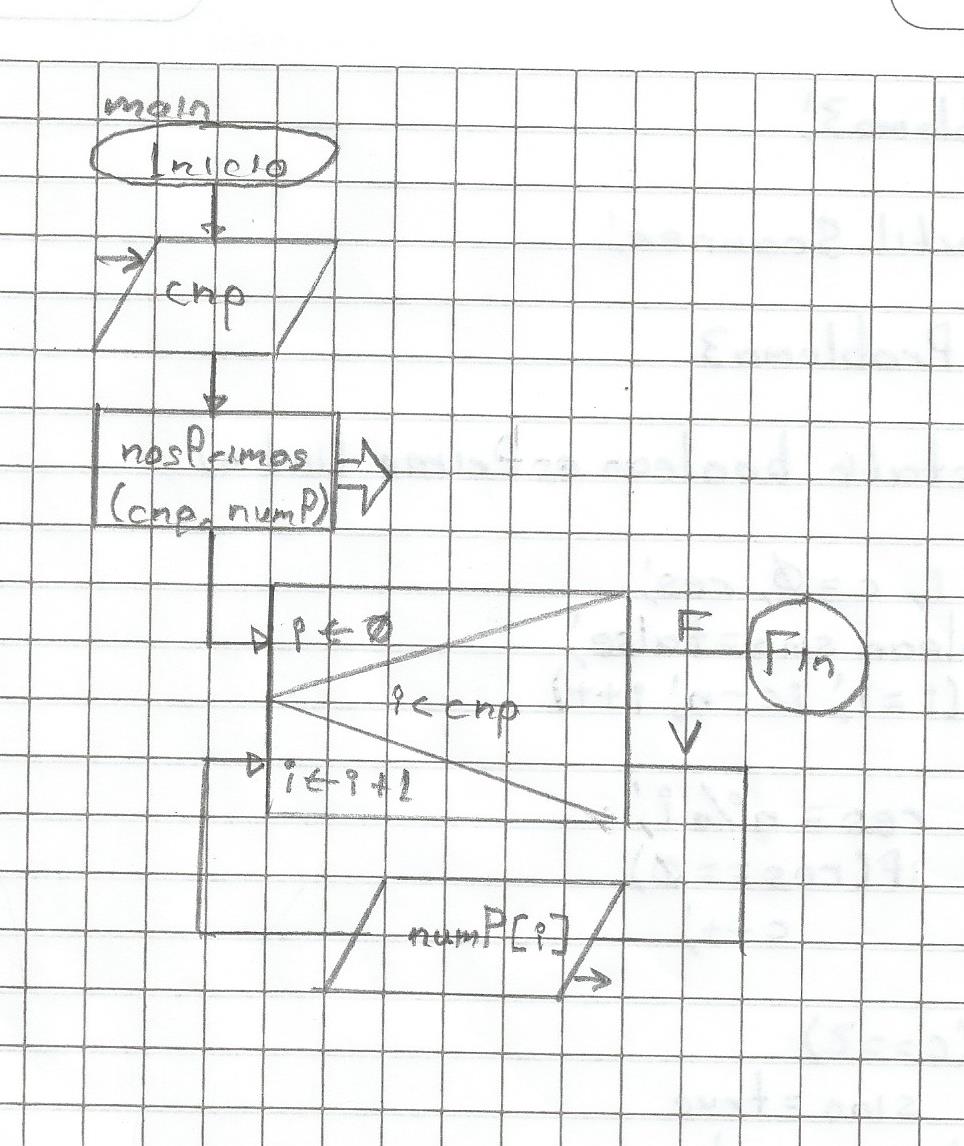 main
Inicio
cnp
nosPrimos
(cnp, numP)
i ← 0
F
Fin
i < cnp
V
i ← i + 1
numP[i]